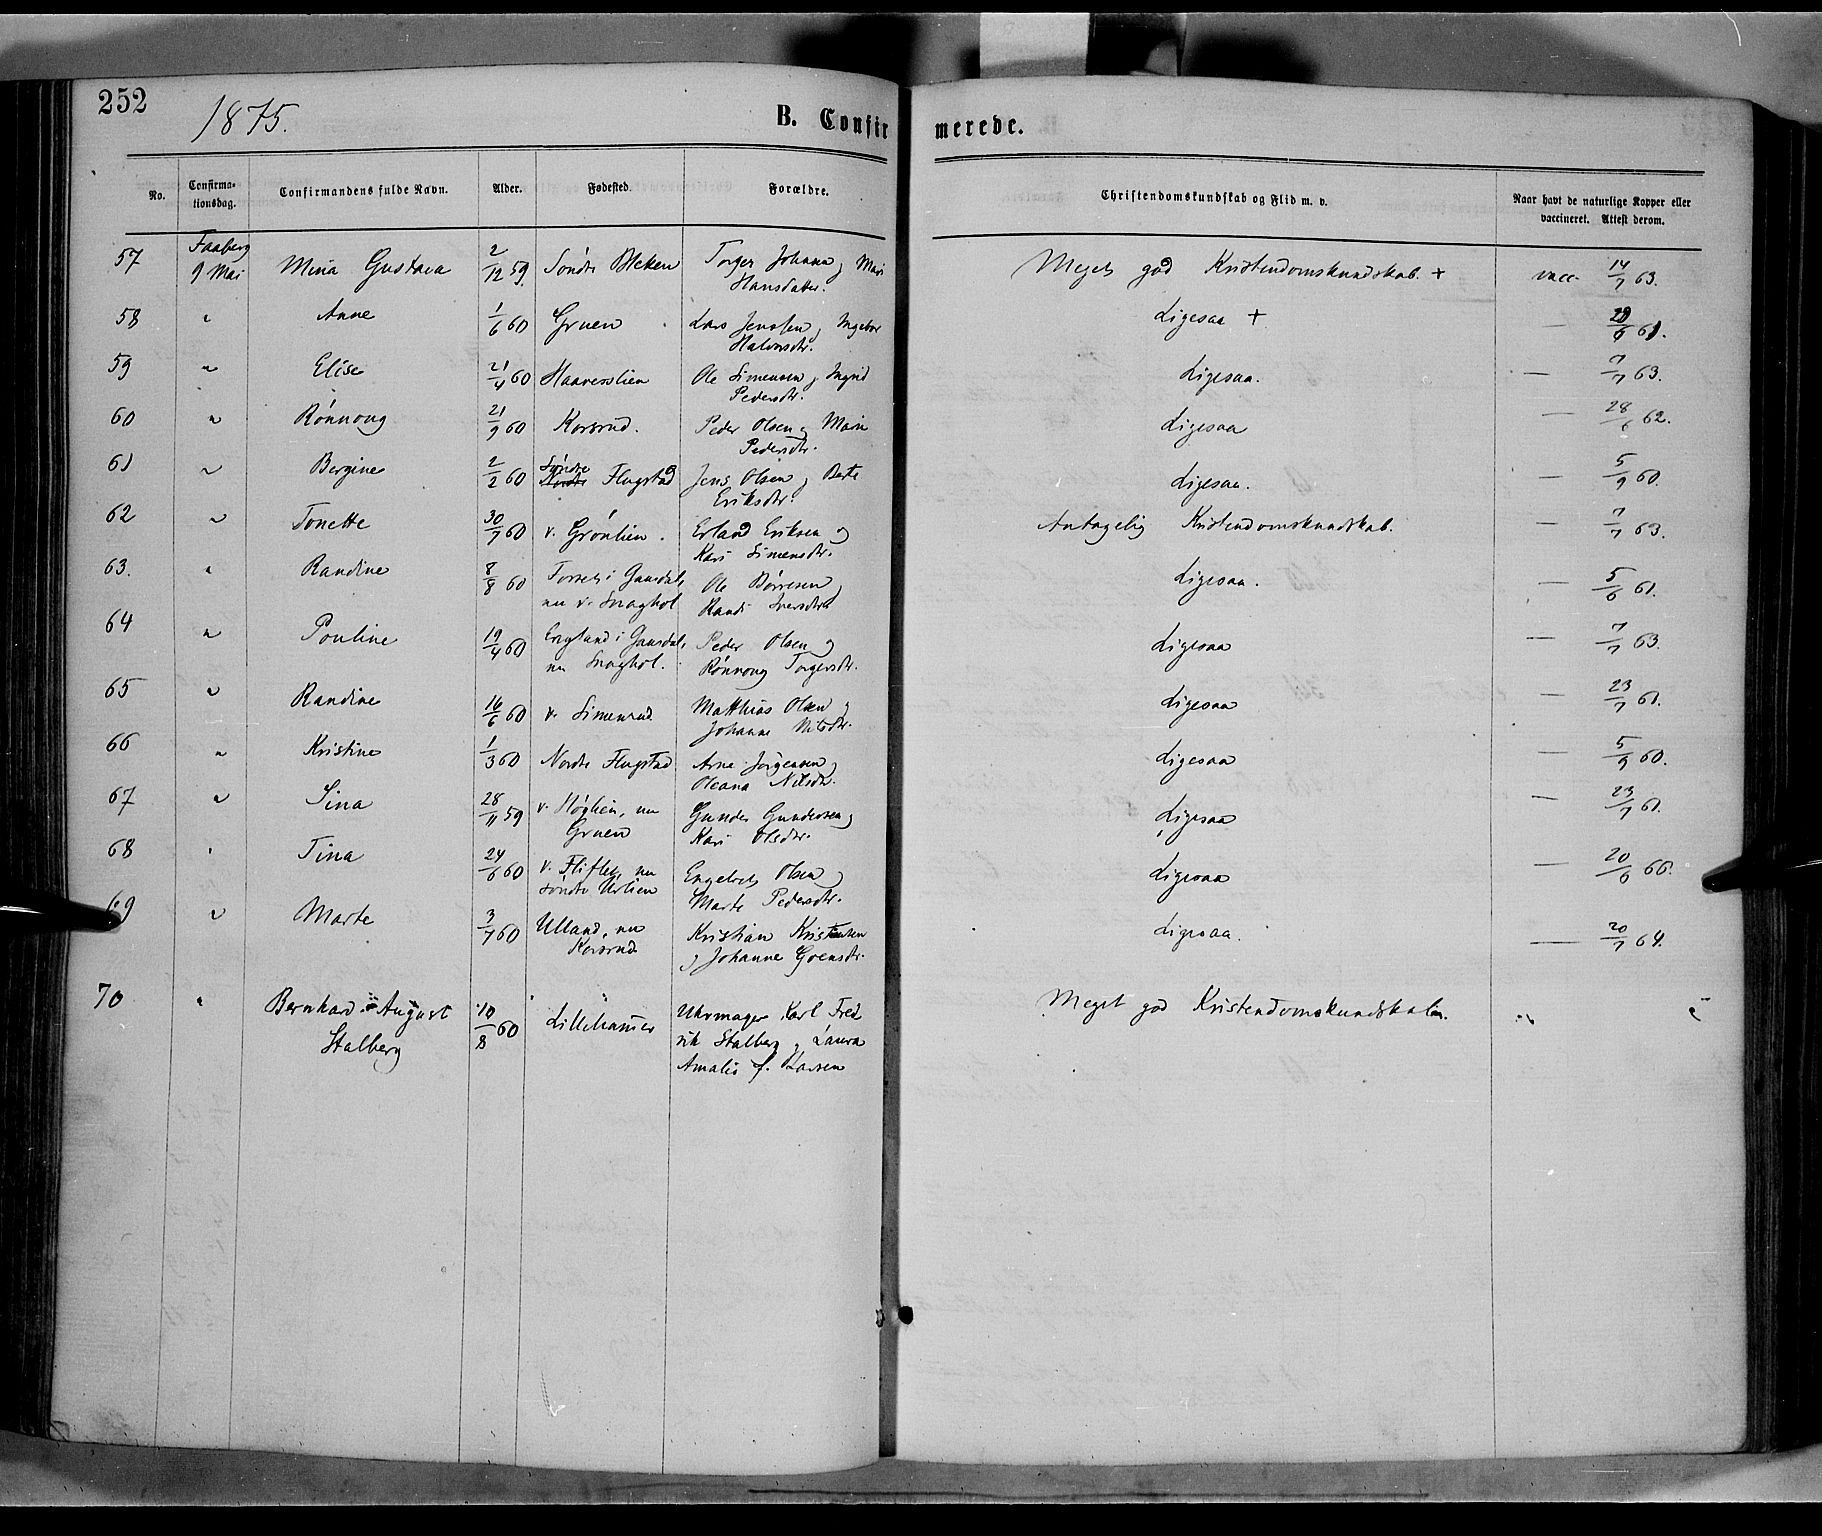 252
1875.
B. Confirmerede.
No. Confirmationsdag. Confirmandens fulde Navn. Alder. Fødested. Forældre. Christendomskundskab og Flid m. v. Naar havt de naturlige Kopper eller vaccineret. Attest derom.
57 Faaberg 9 Mai Mina Gustava 2/12 59. Søndre Bleken Torger Johans. og Mari Hansdatter. Meget god Kristendomskundskab. + vacc. 14/7 63.
58 " Anne 1/6 60 Gruen Lars Jensen og Ingebor Halvorsdtr. Ligesaa + — 61.
59 " Elise 21/4 60 Haaverslien Ole Simensen og Ingrid Pedersdtr. Ligesaa. — 7/7 63.
60 " Rønnoug 21/9 60 Korsrud. Peder Olsen og Mari Pedersdtr. Ligesaa — 28/6 62.
61 " Bergine 2/2 60 Søndre Flugstad Jens Olsen og Berte Eriksdtr. Ligesaa. — 5/9 60.
62 " Tonette 30/7 60 v. Grønlien. Erland Eriksen og Kari Simensdtr. Antagelig Kristendomskundskab. — 7/7 63.
63. " Randine 8/8 60 i Gausdal, nu v. Snaghol Ole Børresen og Randi Iversdtr. Ligesaa. — 5/6 61.
64 " Pouline 19/4 60 Engeland i Gausdal, nu Snaghol. Peder Olsen og Rønnoug Torgersdtr. Ligesaa — 7/7 63.
65 " Randine 16/6 60 v. Simenrud Matthias Olsen og Johanne Nilsdtr. Ligesaa — 23/7 61.
66 " Kristine 1/3 60 Nordre Flugstad Arne Jørgensen og Oleana Nilsdtr. Ligesaa — 5/9 60.
67 " Sina 28/11 59 v. Høglien, nu Gruen Gunder Gundersen og Kari Olsdtr. Ligesaa — 23/7 61.
68 " Tina 24/6 60 v. Fliflet, nu Søndre Urlien Engebret Olsen og Marte Pedersdtr. Ligesaa — 20/6 66.
69 " Marte 3/7 60 Ulland, nu Korsrud Kristian Kristensen og Johanne Goensdtr. Ligesaa. — 20/7 64.
70 " Bernhard August Stalberg 10/8 60 Lillehamer Uhrmager Karl Fredrik Stalberg og Laura Amalie f. Larsen Meget god Kristendomskundskab.